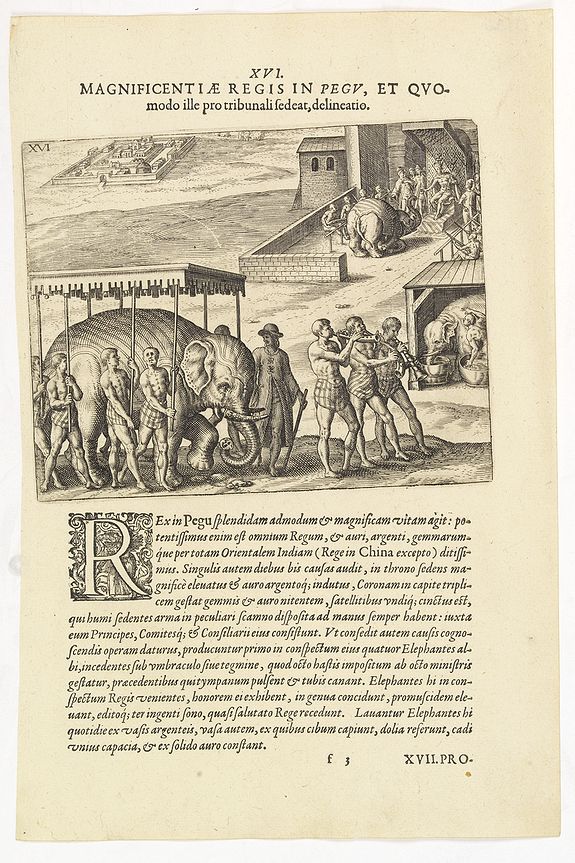 XVI.
MAGNIFICENTIÆ REGIS IN PEGV, ET QVO-
modo ille pro tribunali ſedeat, delineatio.
XVI
REx in Pegu ſplendidam admodum & magnificam vitam agit: po-
tentiſſimus enim eſt omnium Regum, & auri, argenti, gemmarum-
que per totam Orientalem Indiam (Rege in China excepto) ditiſſi-
mus. Singulis autem diebus bis cauſas audit, in throno ſedens ma-
gnificè eleuatus & auro argentoq; indutus, Coronam in capite tripli-
cem geſtat gemmis & auro nitentem, ſatellitibus vndiq; cinctus eſt,
qui humi ſedentes arma in peculiari ſcamno diſpoſita ad manus ſemper habent: iuxta
eum Principes, Comitesq; & Conſiliarii eius conſiſtunt. Vt conſedit autem cauſis cogno-
ſcendis operam daturus, producuntur primo in conſpectum eius quatuor Elephantes al-
bi, incedentes ſub vmbraculo ſiue tegmine, quod octo haſtis impoſitum ab octo miniſtris
geſtatur, præcedentibus qui tympanum pulſent & tubis canant. Elephantes hi in con-
ſpectum Regis venientes, honorem ei exhibent, in genua concidunt, promuſcidem ele-
uant, editoq; ter ingenti ſono, quaſi ſalutato Rege recedunt. Lauantur Elephantes hi
quotidie ex vaſis argenteis, vaſa autem, ex quibus cibum capiunt, dolia referunt, cadi
vnius capacia, & ex ſolido auro conſtant.
f 3 XVII. PRO-